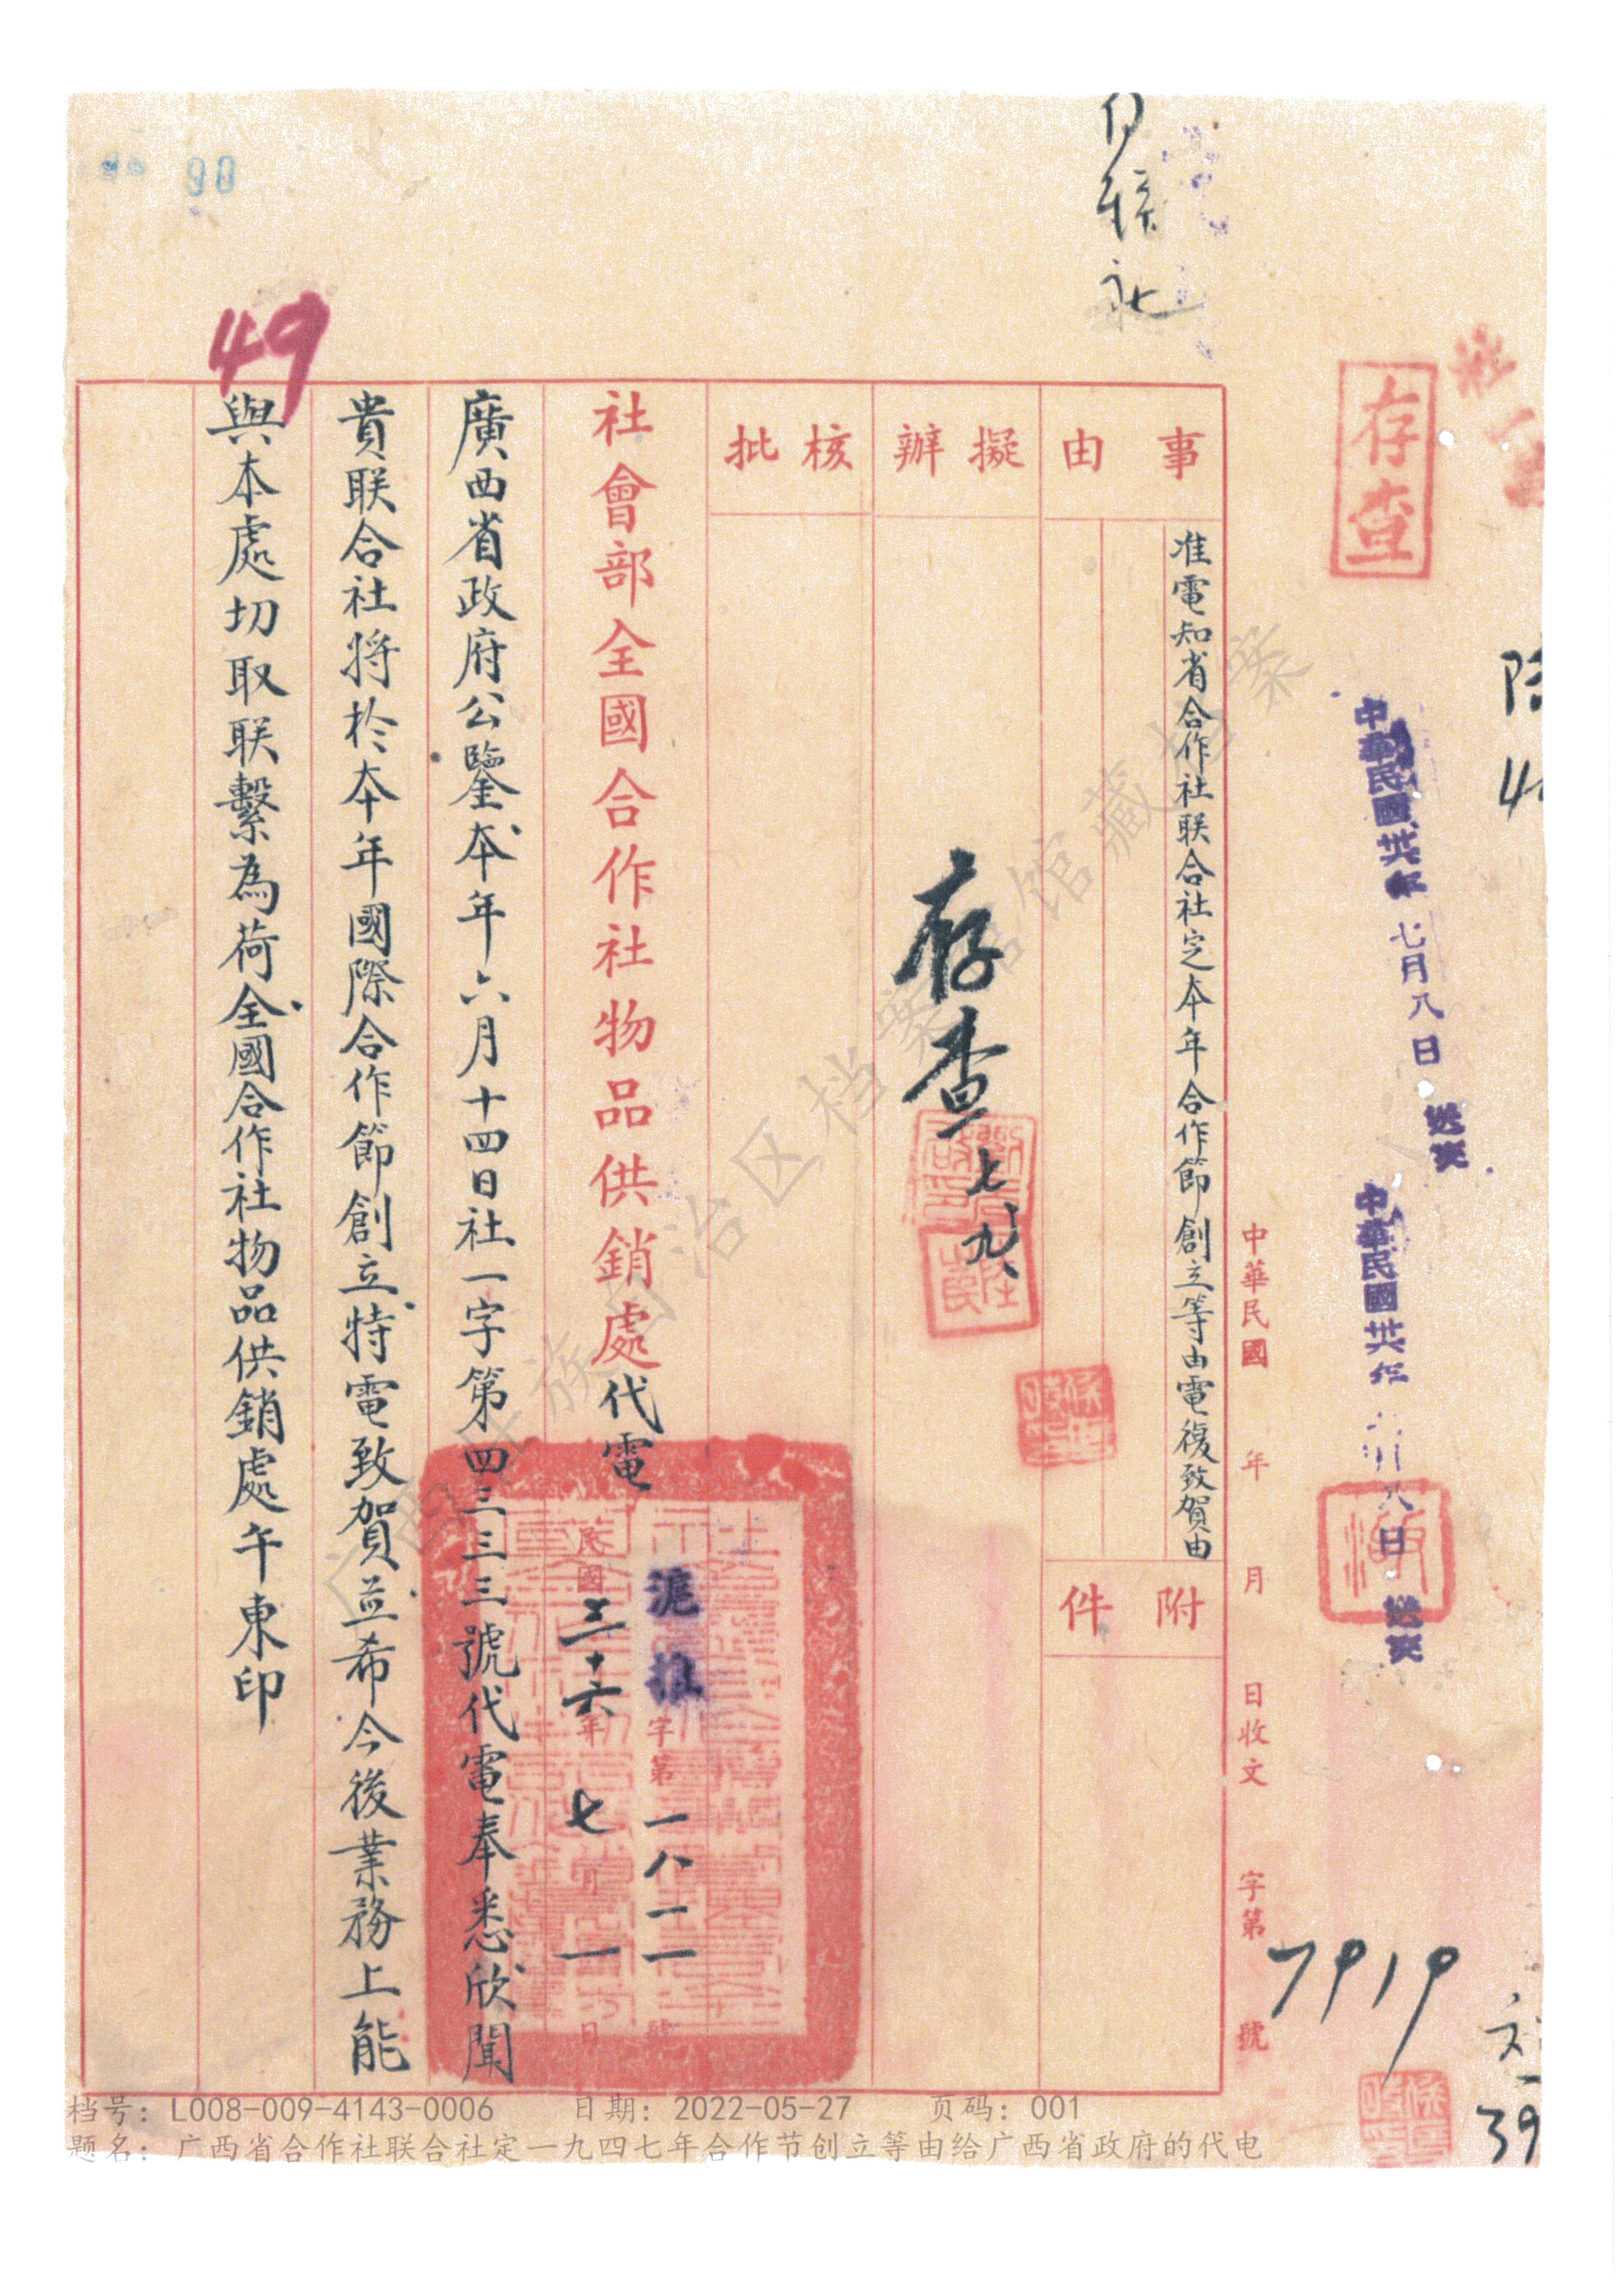 存查
中華民國卅六年七月八日送來
中華民國卅六年
八日送來
中華民國 年 月 日收文 字第 7919 號
事由
准電知省合作社联合社定本年合作節創立等由電復致賀由
附件
擬辦
存查 七、九、
核批
社會部全國合作社物品供銷處代電
滬 字第一八二一號
民國三十六年七月一日
廣西省政府公鑒本年六月十四日社一字第四三三三號代電奉悉欣聞
貴联合社将於本年國際合作節創立特電致賀並希今後業務上能
與本處切取联繫為荷全國合作社物品供銷處午東印
49
90
39
档号：L008-009-4143-0006 日期：2022-05-27 页码：001
题名：广西省合作社联合社定一九四七年合作节创立等由给广西省政府的代电